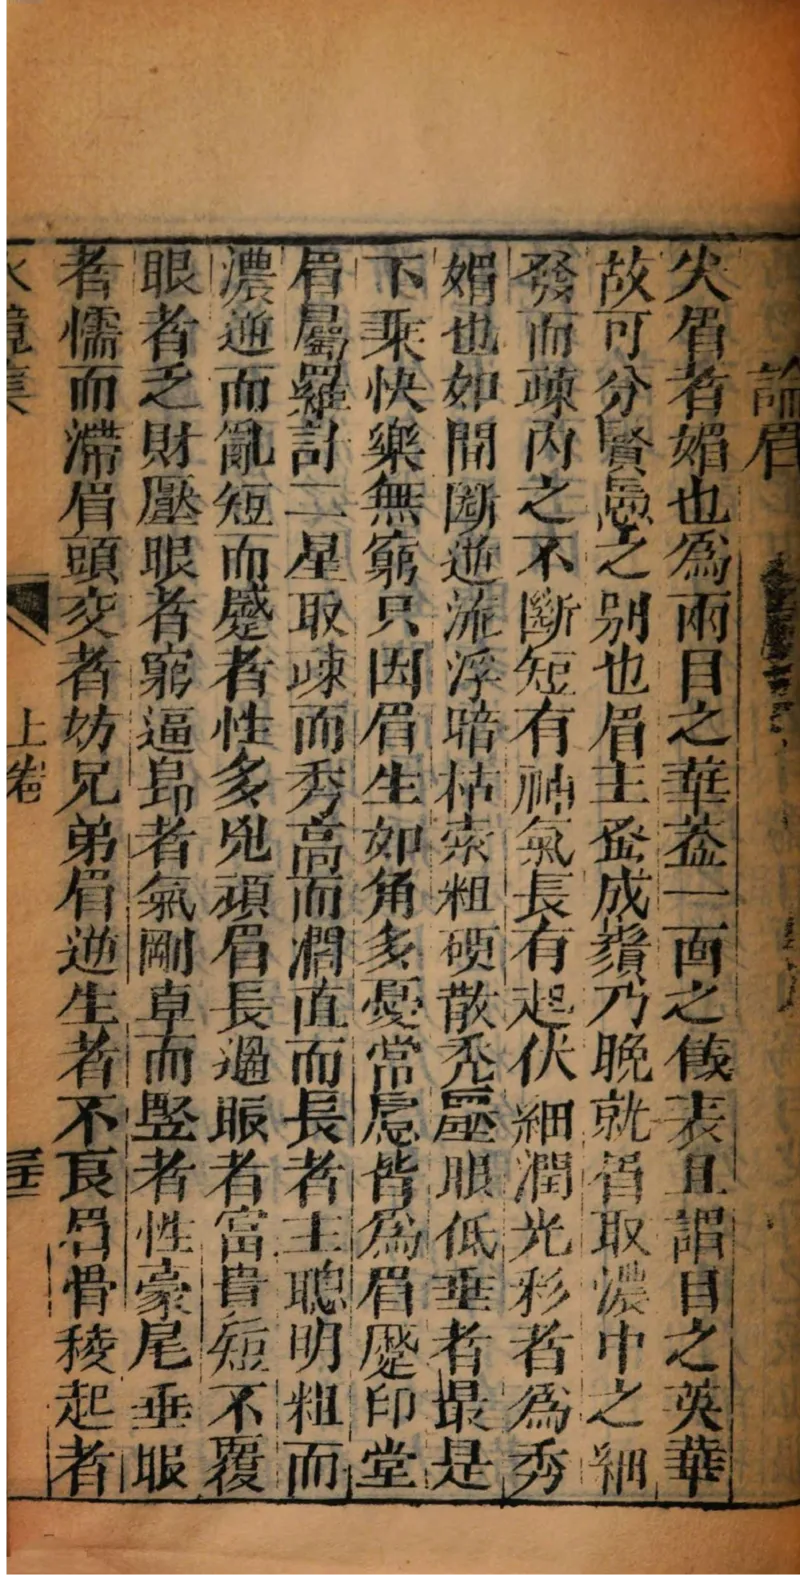 論眉
夫眉者媚也爲兩目之華蓋一面之儀表且謂目之英華
故可分賢愚之別也眉主蚤成鬚乃晚就眉取濃中之細
發而疎內之不斷短有神氣長有起伏細潤光彩者爲秀
媚也如間斷逆流浮暗枯索粗硬散禿壓眼低垂者最是
下乘快樂無窮只因眉生如角多憂常慮皆爲眉蹙印堂
眉屬羅計二星取疎而秀高而濶直而長者主聰明粗而
濃逆而亂短而蹙者性多兇頑眉長過眼者富貴短不覆
眼者乏財壓眼者窮逼昂者氣剛卓而竪者性豪尾垂眼
者懦而滯眉頭交者妨兄弟眉逆生者不良眉骨稜起者
水鏡集
上卷